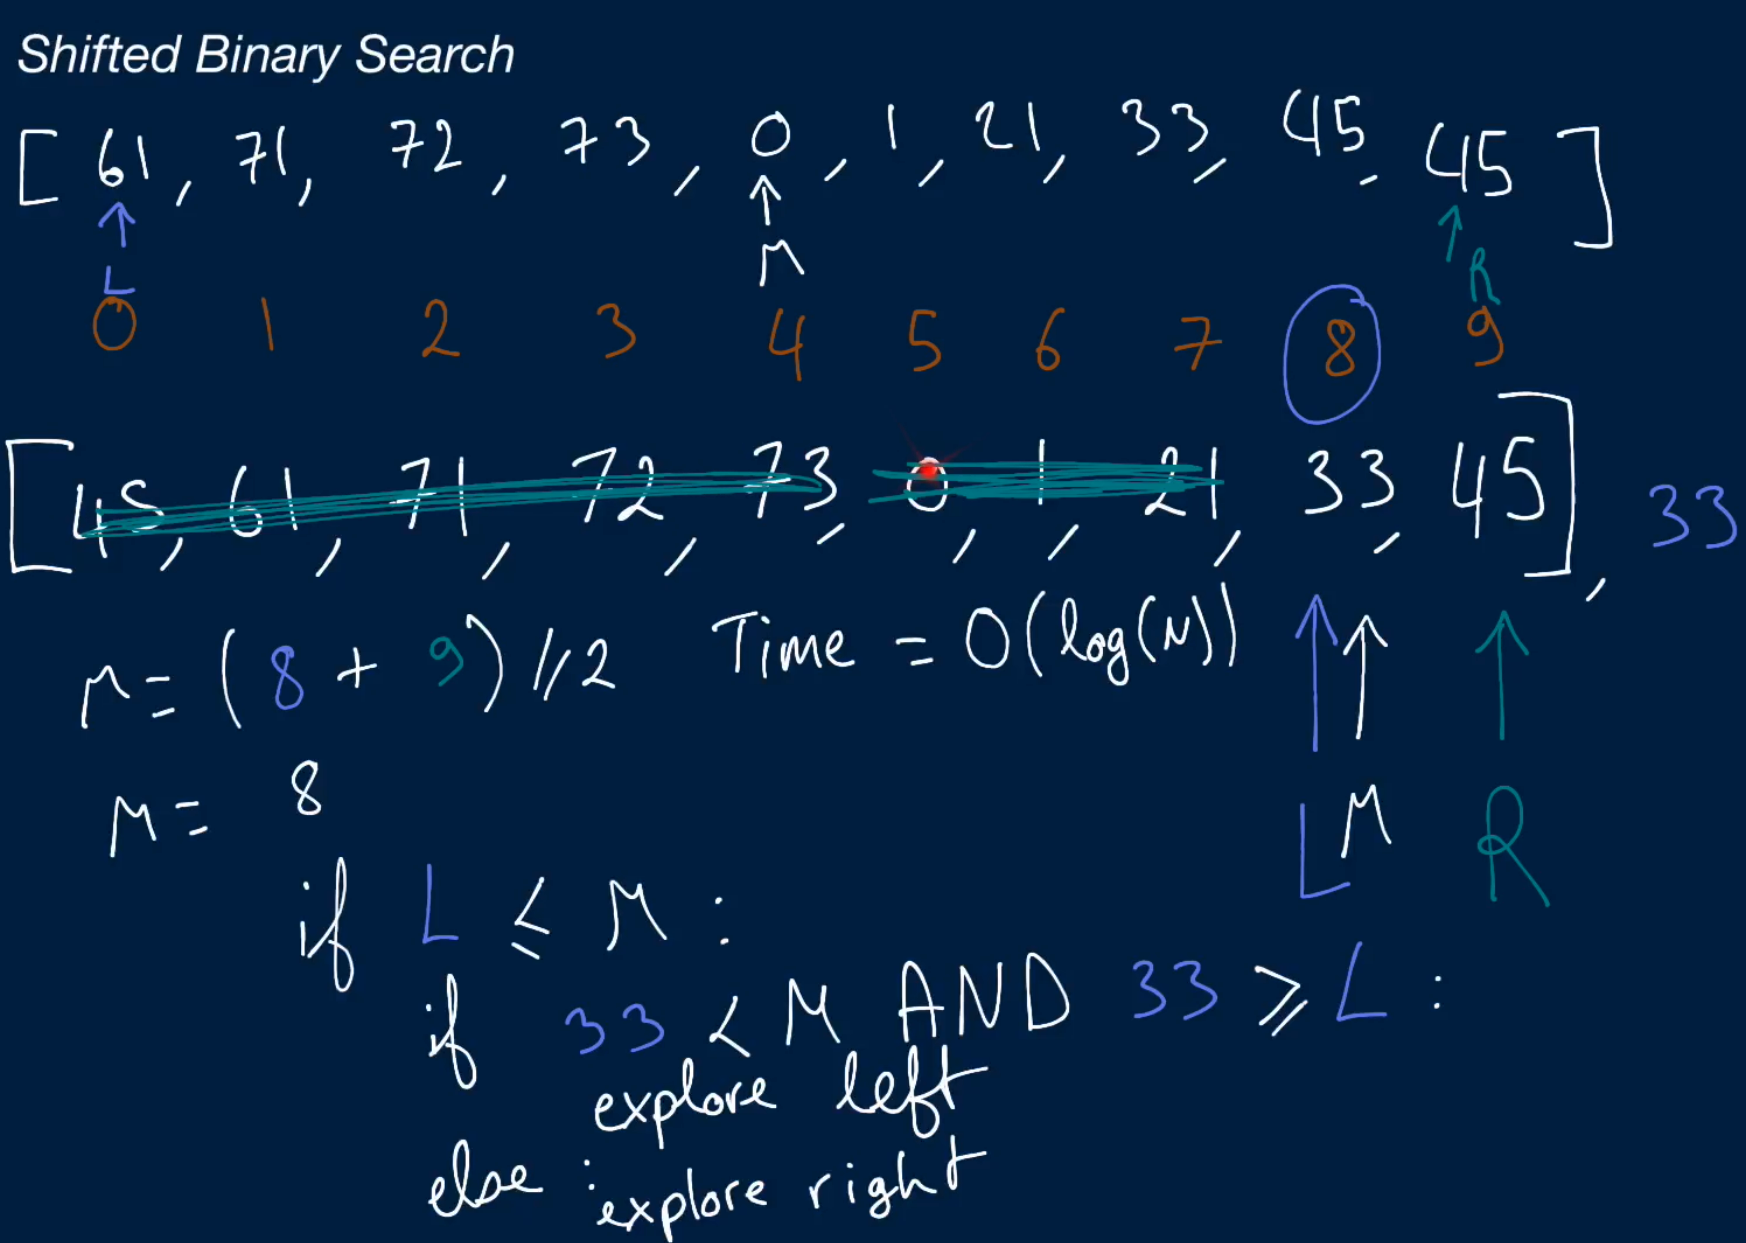 Shifted Binary Search
[ 61, 71, 72, 73, 0, 1, 21, 33, 45, 45 ]
L M R
0 1 2 3 4 5 6 7 8 9
[45, 61, 71, 72, 73, 0, 1, 21, 33, 45], 33
M = (8 + 9) // 2 Time = O(log(N))
M = 8
L M R
if L ≤ M :
if 33 < M AND 33 ≥ L :
explore left
else : explore right